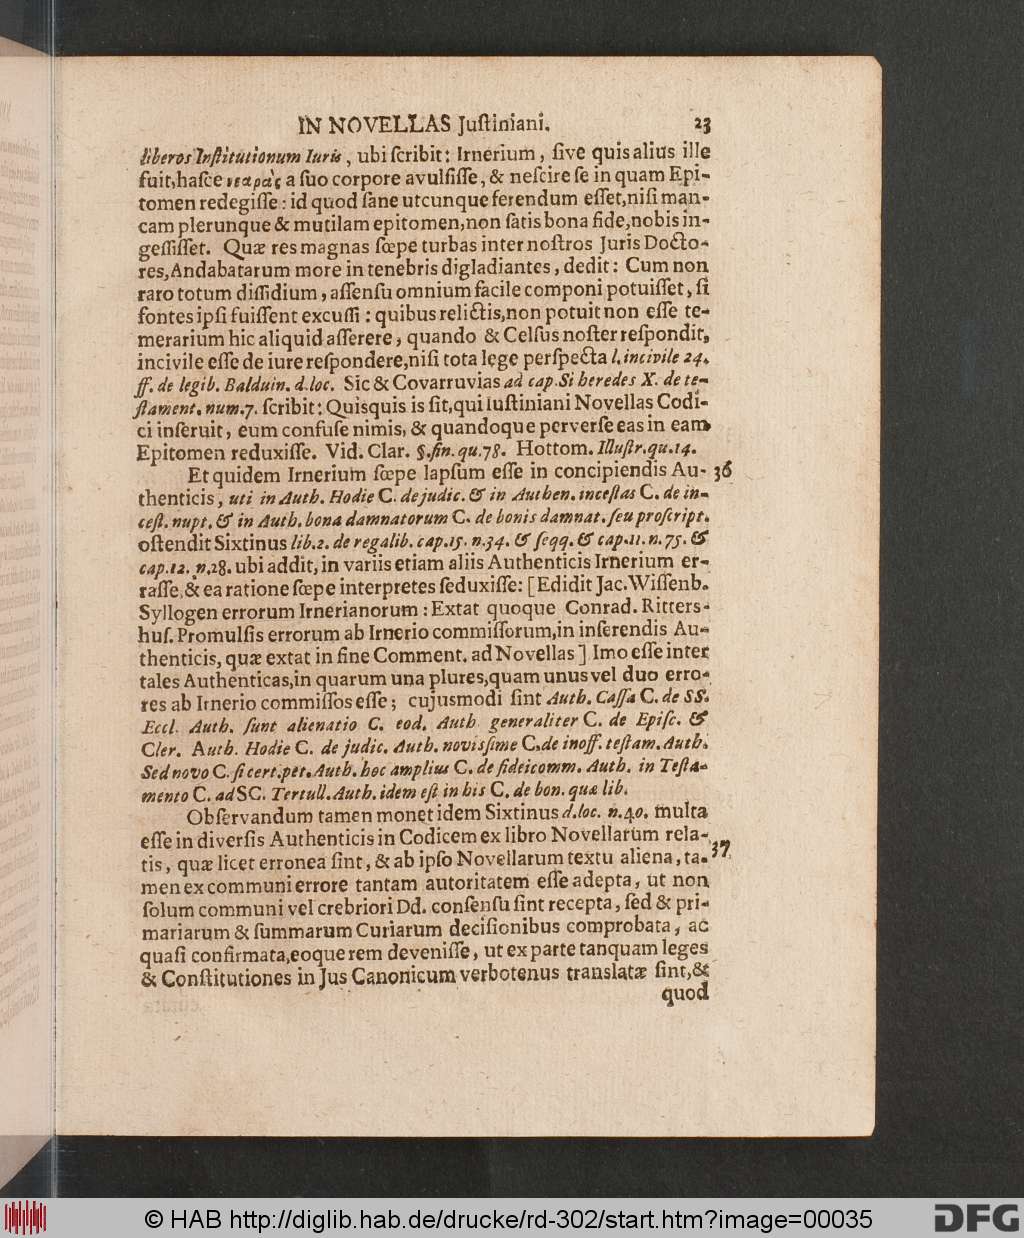 IN NOVELLAS Juſtiniani. 23
liberos Inſtitutionum Iuris, ubi ſcribit: Irnerium, ſive quis alius ille
fuit, haſce νεαρὰς a ſuo corpore avulſiſſe, & neſcire ſe in quam Epi-
tomen redegiſſe: id quod ſane utcunque ferendum eſſet, niſi man-
cam plerunque & mutilam epitomen, non ſatis bona fide, nobis in-
geſſiſſet. Quæ res magnas ſœpe turbas inter noſtros Juris Docto-
res, Andabatarum more in tenebris digladiantes, dedit: Cum non
raro totum diſſidium, aſſenſu omnium facile componi potuiſſet, ſi
fontes ipſi fuiſſent excuſſi: quibus relictis, non potuit non eſſe te-
merarium hic aliquid aſſerere, quando & Celſus noſter reſpondit,
incivile eſſe de iure reſpondere, niſi tota lege perſpecta l. incivile 24.
ff. de legib. Balduin. d. loc. Sic & Covarruvias ad cap. Si heredes X. de te-
ſtament. num. 7. ſcribit: Quisquis is ſit, qui Iuſtiniani Novellas Codi-
ci inſeruit, eum confuſe nimis, & quandoque perverſe eas in eam
Epitomen reduxiſſe. Vid. Clar. §. fin. qu. 78. Hottom. Illuſtr. qu. 14.
Et quidem Irnerium ſœpe lapſum eſſe in concipiendis Au- 36
thenticis, uti in Auth. Hodie C. de judic. & in Authen. inceſtas C. de in-
ceſt. nupt. & in Auth. bona damnatorum C. de bonis damnat. ſeu proſcript.
oſtendit Sixtinus lib. 2. de regalib. cap. 15. n. 34. & ſeqq. & cap. 11. n. 75. &
cap. 12. n. 28. ubi addit, in variis etiam aliis Authenticis Irnerium er-
raſſe, & ea ratione ſœpe interpretes ſeduxiſſe: [Edidit Jac. Wiſſenb.
Syllogen errorum Irnerianorum: Extat quoque Conrad. Ritters-
huſ. Promulſis errorum ab Irnerio commiſſorum, in inſerendis Au-
thenticis, quæ extat in fine Comment. ad Novellas] Imo eſſe inter
tales Authenticas, in quarum una plures, quam unus vel duo erro-
res ab Irnerio commiſſos eſſe; cujusmodi ſint Auth. Caſſa C. de SS.
Eccl. Auth. ſunt alienatio C. eod. Auth generaliter C. de Epiſc. &
Cler. Auth. Hodie C. de judic. Auth. noviſsime C. de inoff. teſtam. Auth.
Sed novo C. ſi cert. pet. Auth. hoc amplius C. de fideicomm. Auth. in Teſta-
mento C. ad SC. Tertull. Auth. idem eſt in his C. de bon. quæ lib.
Obſervandum tamen monet idem Sixtinus d. loc. n. 40. multa
eſſe in diverſis Authenticis in Codicem ex libro Novellarum rela- 37
tis, quæ licet erronea ſint, & ab ipſo Novellarum textu aliena, ta-
men ex communi errore tantam autoritatem eſſe adepta, ut non
ſolum communi vel crebriori Dd. conſenſu ſint recepta, ſed & pri-
mariarum & ſummarum Curiarum deciſionibus comprobata, ac
quaſi confirmata, eoque rem deveniſſe, ut ex parte tanquam leges
& Conſtitutiones in Jus Canonicum verbotenus translatæ ſint, &
quod
© HAB http://diglib.hab.de/drucke/rd-302/start.htm?image=00035
DFG